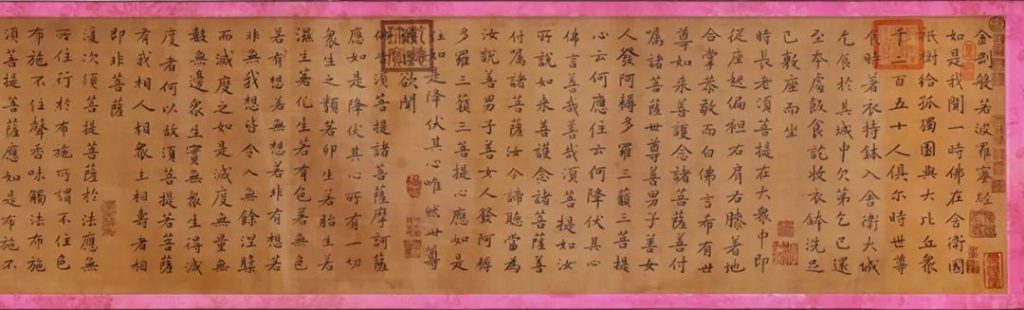 金剛般若波羅蜜經
如是我聞一時佛在舍衛國
祇樹給孤獨園與大比丘眾
千二百五十人俱尔時世尊
食時著衣持鉢入舍衛大城
乞食於其城中次第乞已還
至本處飯食訖收衣鉢洗足
已敷座而坐
時長老須菩提在大眾中即
從座起偏袒右肩右膝著地
合掌恭敬而白佛言希有世
尊如来善護念諸菩薩善付
囑諸菩薩世尊善男子善女
人發阿耨多羅三藐三菩提
心云何應住云何降伏其心
佛言善哉善哉須菩提如汝
所說如来善護念諸菩薩善
付囑諸菩薩汝今諦聽當為
汝說善男子善女人發阿耨
多羅三藐三菩提心應如是
住如是降伏其心唯然世尊
欲聞
佛告須菩提諸菩薩摩訶薩
應如是降伏其心所有一切
眾生之類若卵生若胎生若
濕生若化生若有色若無色
若有想若無想若非有想若
非無我想皆令入無餘涅槃
而滅度之如是滅度無量無
數無邊眾生實無眾生得滅
度者何以故須菩提若菩薩
有我相人相眾生相壽者相
即非菩薩
復次須菩提菩薩於法應無
所住行於布施所謂不住色
布施不住聲香味觸法布施
須菩提菩薩應如是布施不